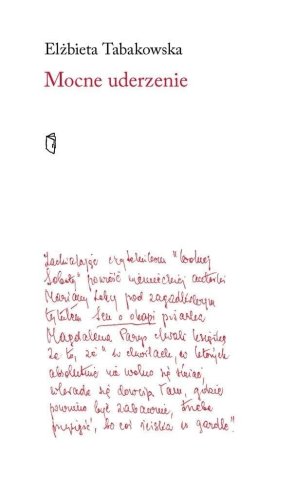 Elżbieta Tabakowska
Mocne uderzenie
Zachwalając czytelnikom "Wolnej
Soboty" powieść niemieckiej autorki
Mariany Leky pod zagadkowym
tytułem Sen o okapi pisarka
Magdalena Parys chwali książkę
za to, że "w chwilach, w których
absolutnie nie wolno się śmiać,
wkrada się dowcip. Tam, gdzie
powinno być zabawnie, trzeba
przeżyć, bo coś ściska w gardle".